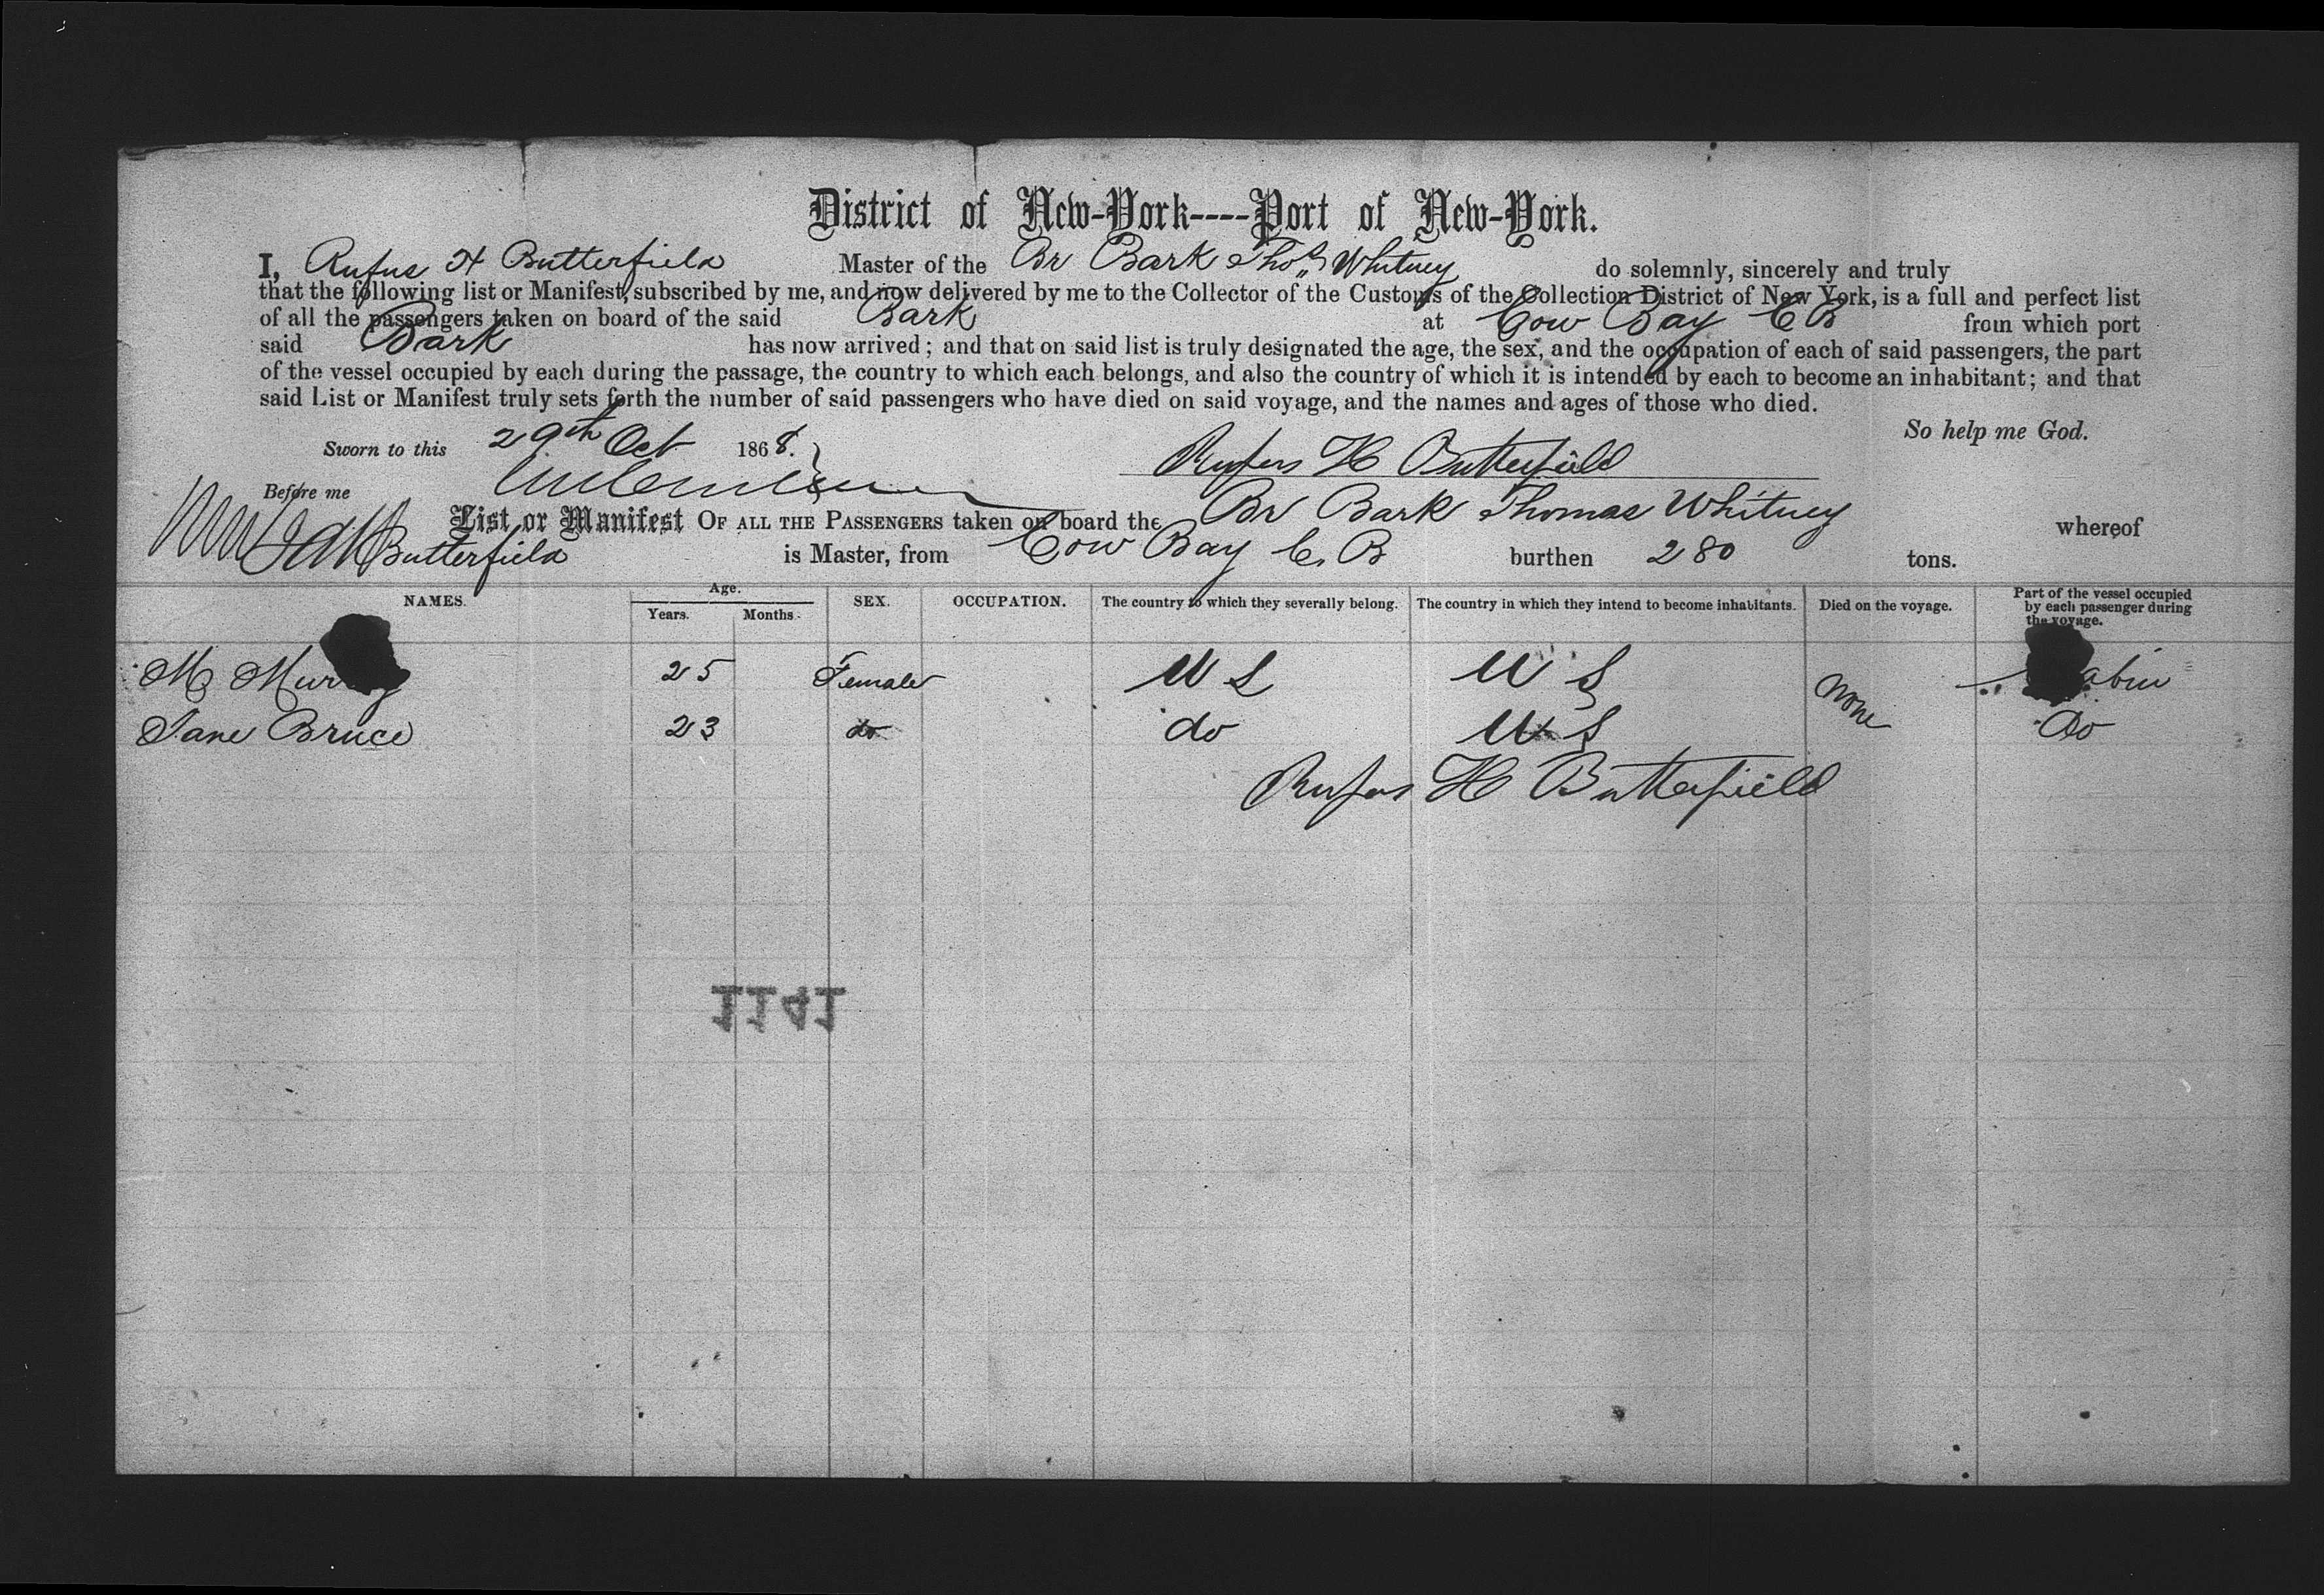 District of New-York----Port of New-York.
I, Rufus H Butterfield Master of the Br Bark Thos Whitney do solemnly, sincerely and truly
that the following list or Manifest, subscribed by me, and now delivered by me to the Collector of the Customs of the Collection District of New York, is a full and perfect list
of all the passengers taken on board of the said Bark at Cow Bay C B from which port
said Bark has now arrived; and that on said list is truly designated the age, the sex, and the occupation of each of said passengers, the part
of the vessel occupied by each during the passage, the country to which each belongs, and also the country of which it is intended by each to become an inhabitant; and that
said List or Manifest truly sets forth the number of said passengers who have died on said voyage, and the names and ages of those who died.
So help me God.
Sworn to this 29th Oct 1868. Rufus H Butterfield
Before me
List or Manifest OF ALL THE PASSENGERS taken on board the Br Bark Thomas Whitney whereof
Butterfield is Master, from Cow Bay C. B burthen 280 tons.
NAMES. Age. Years. Months. SEX. OCCUPATION. The country to which they severally belong. The country in which they intend to become inhabitants. Died on the voyage. Part of the vessel occupied by each passenger during the voyage.
M Murray 25 Female U S U S None Cabin
Jane Bruce 23 do do U S Do
Rufus H Butterfield
1141